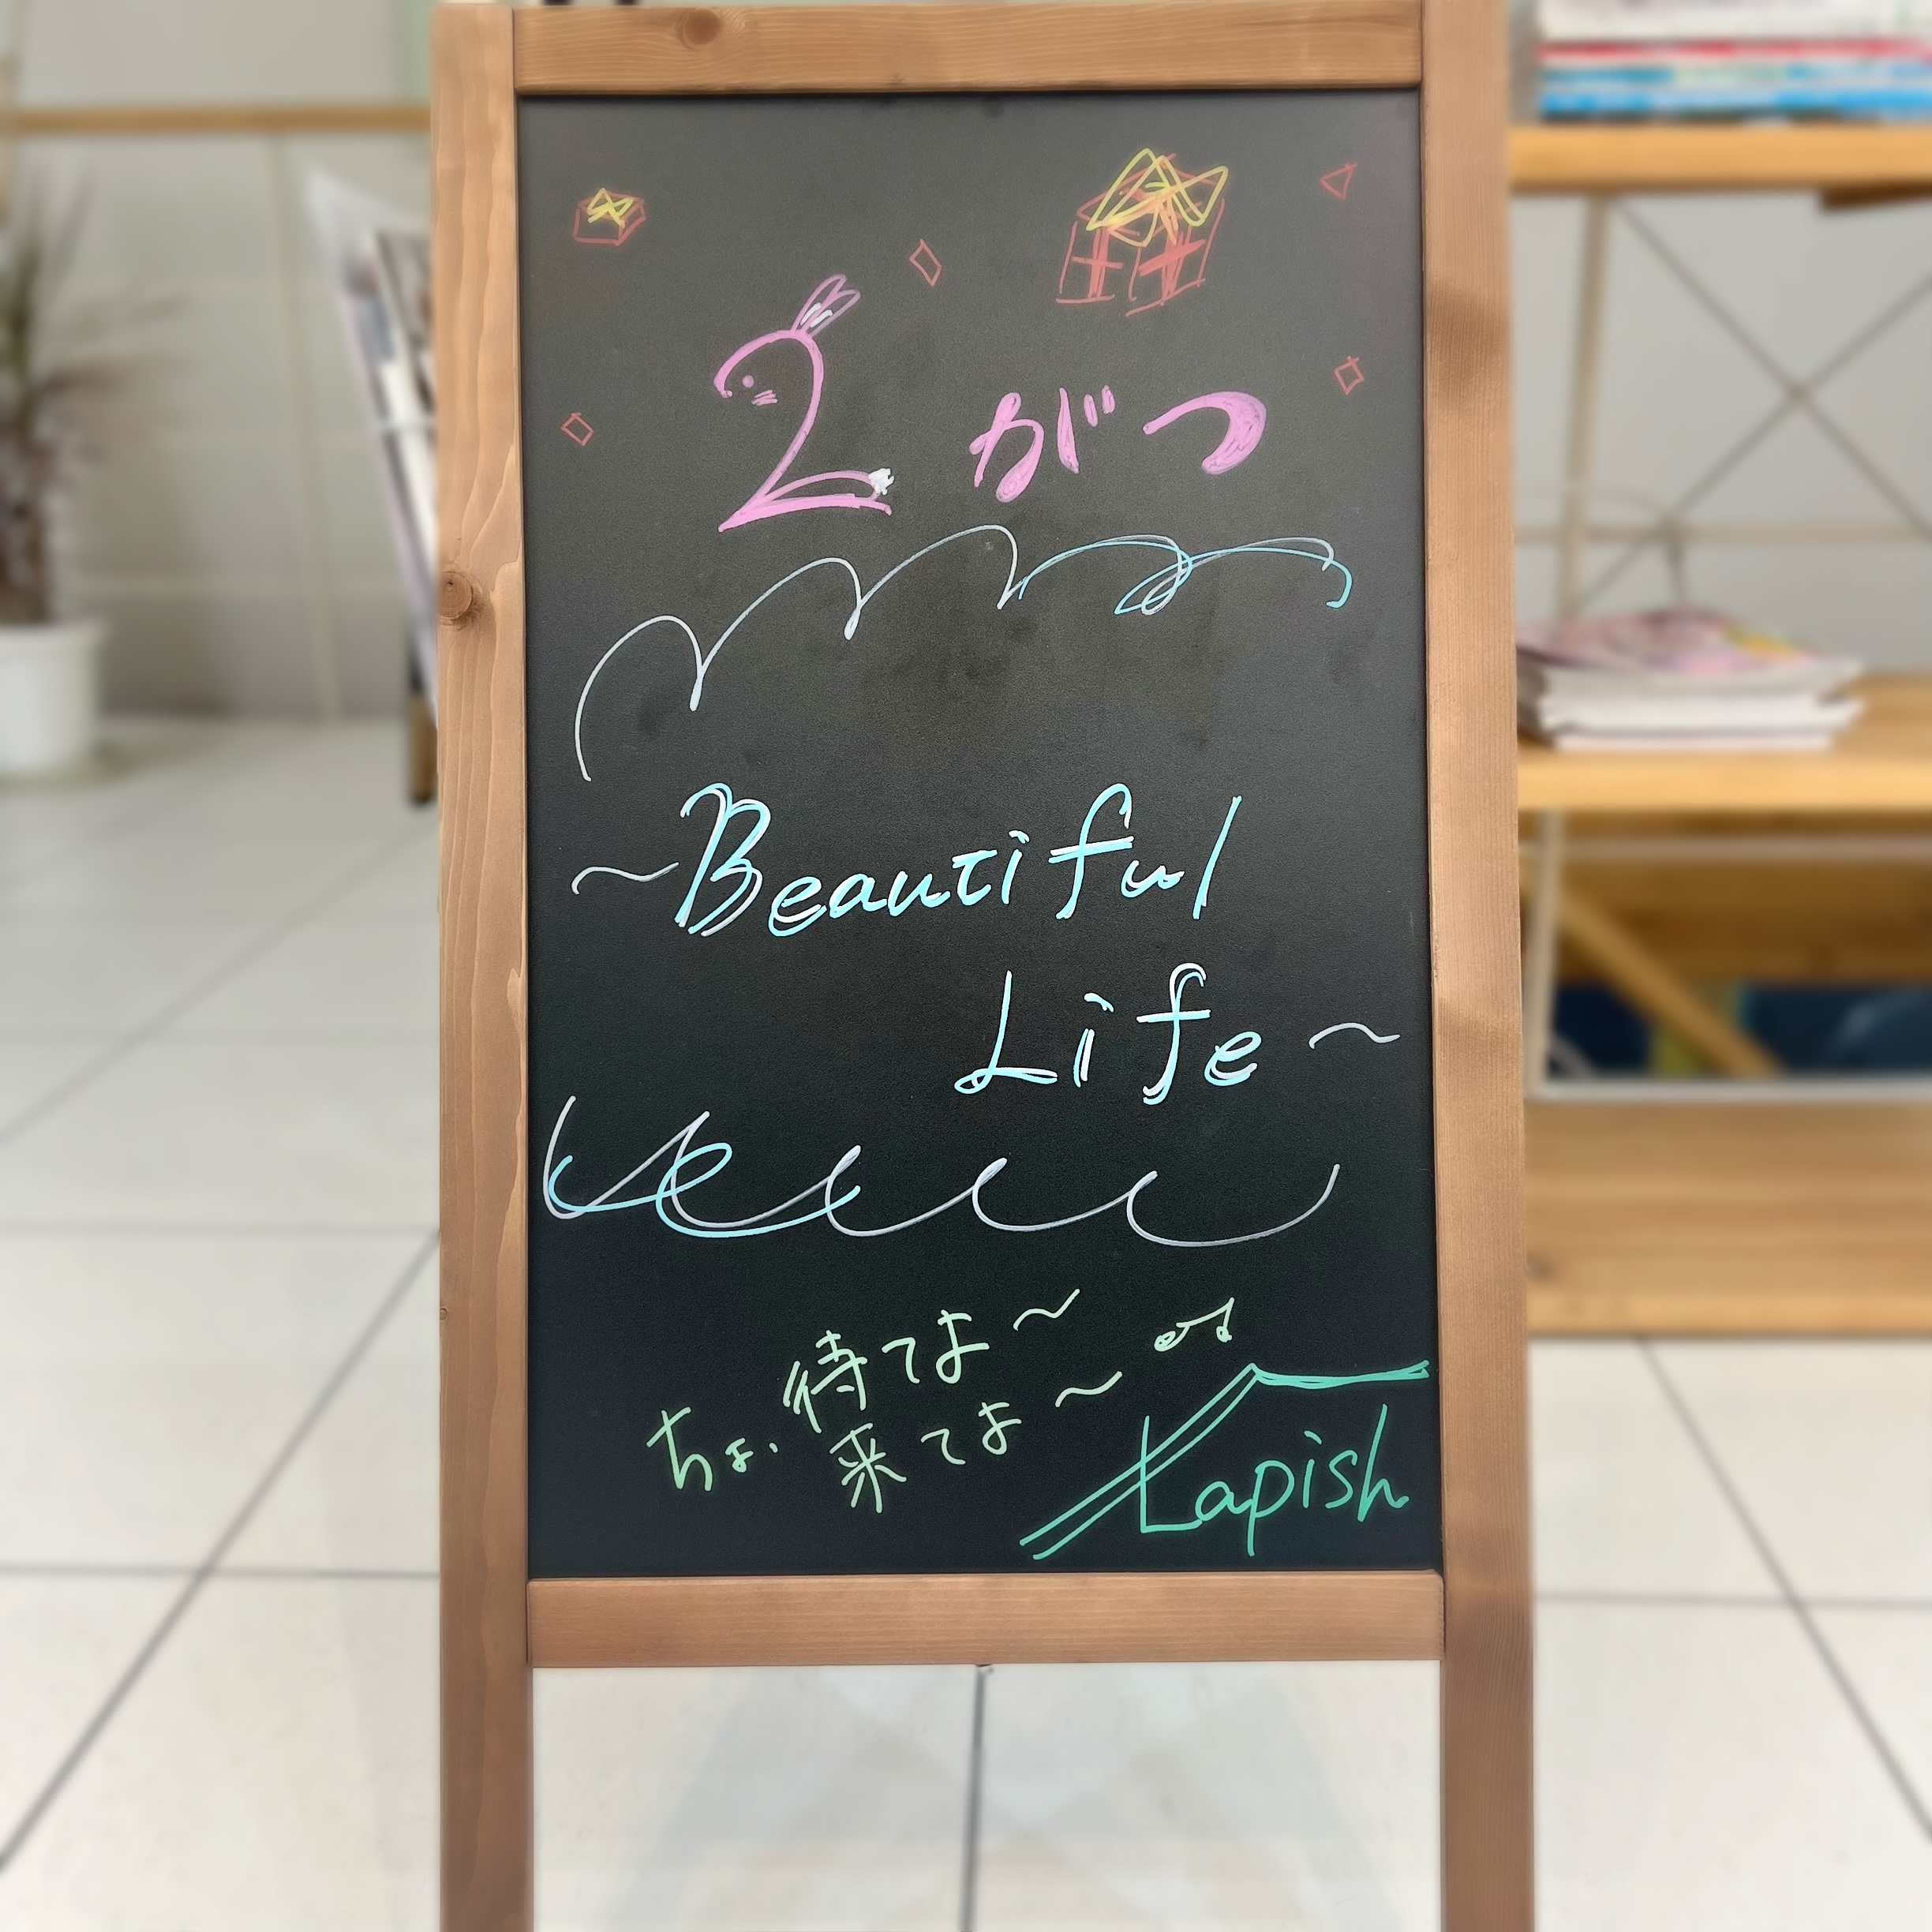 2がつ
~Beautiful
Life~
待てよ~
ちょ、来てよ~
Lapish